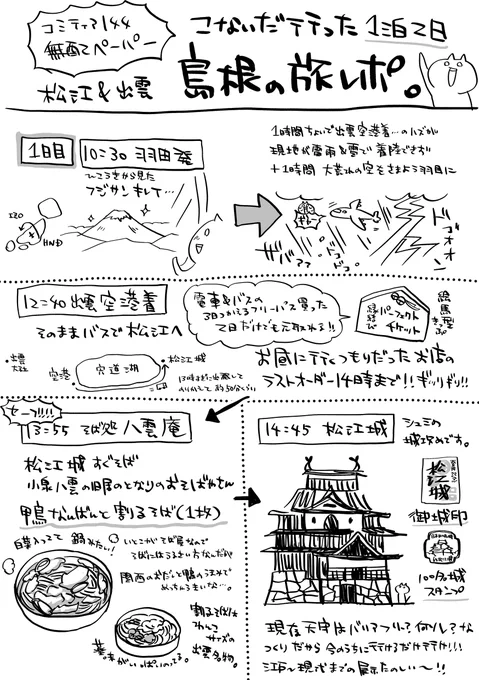 コミティア144
無配ペーパー
松江&出雲
こないだ行った1泊2日
島根の旅レポ。
1日目
10:30 羽田発
ひこうきから見た
フジサンキレイ…
IZO
HND
1時間ちょいで出雲空港着…のハズが
現地が雷雨&雪で着陸できず
+1時間 大荒れの空をさまよう羽目に
12:40 出雲空港着
そのままバスで松江へ
出雲
大社
空港
宍道湖
松江城
電車&バスの
3日つかえるフリーパス買った
2日だけでも元取れる!!
縁結び
パーフェクト
チケット
絵馬型
お昼に行くつもりだったお店の
ラストオーダー14時まで!!ギッリギリ!!
セーフ!!!!
13:55 そば処 八雲庵
松江城すぐそば
小泉八雲の旧居のとなりのおそばやさん
鴨なんばんと割るそば(1枚)
白菜入ってて 鍋みたい!
関西のおだしと鴨のうまみで
めっちゃうまいな…。
出雲名物。
薬味がいっぱいのってる。
14:45 松江城
シュミの
城攻めです。
松江城
御城印
100名城
スタンプ
現在天守はバリアフリー?何ソレ?な
つくりだから今のうちに行けるだけ行け!!!
江戸~現代までの展示たのしい~!!